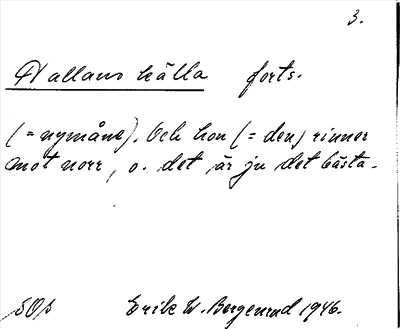 3.
Nallans källa forts.
(= nymåne). Och hon (= den) rinner
mot norr, o. det är ju det bästa.
Erik W. Bergenrud 1946.